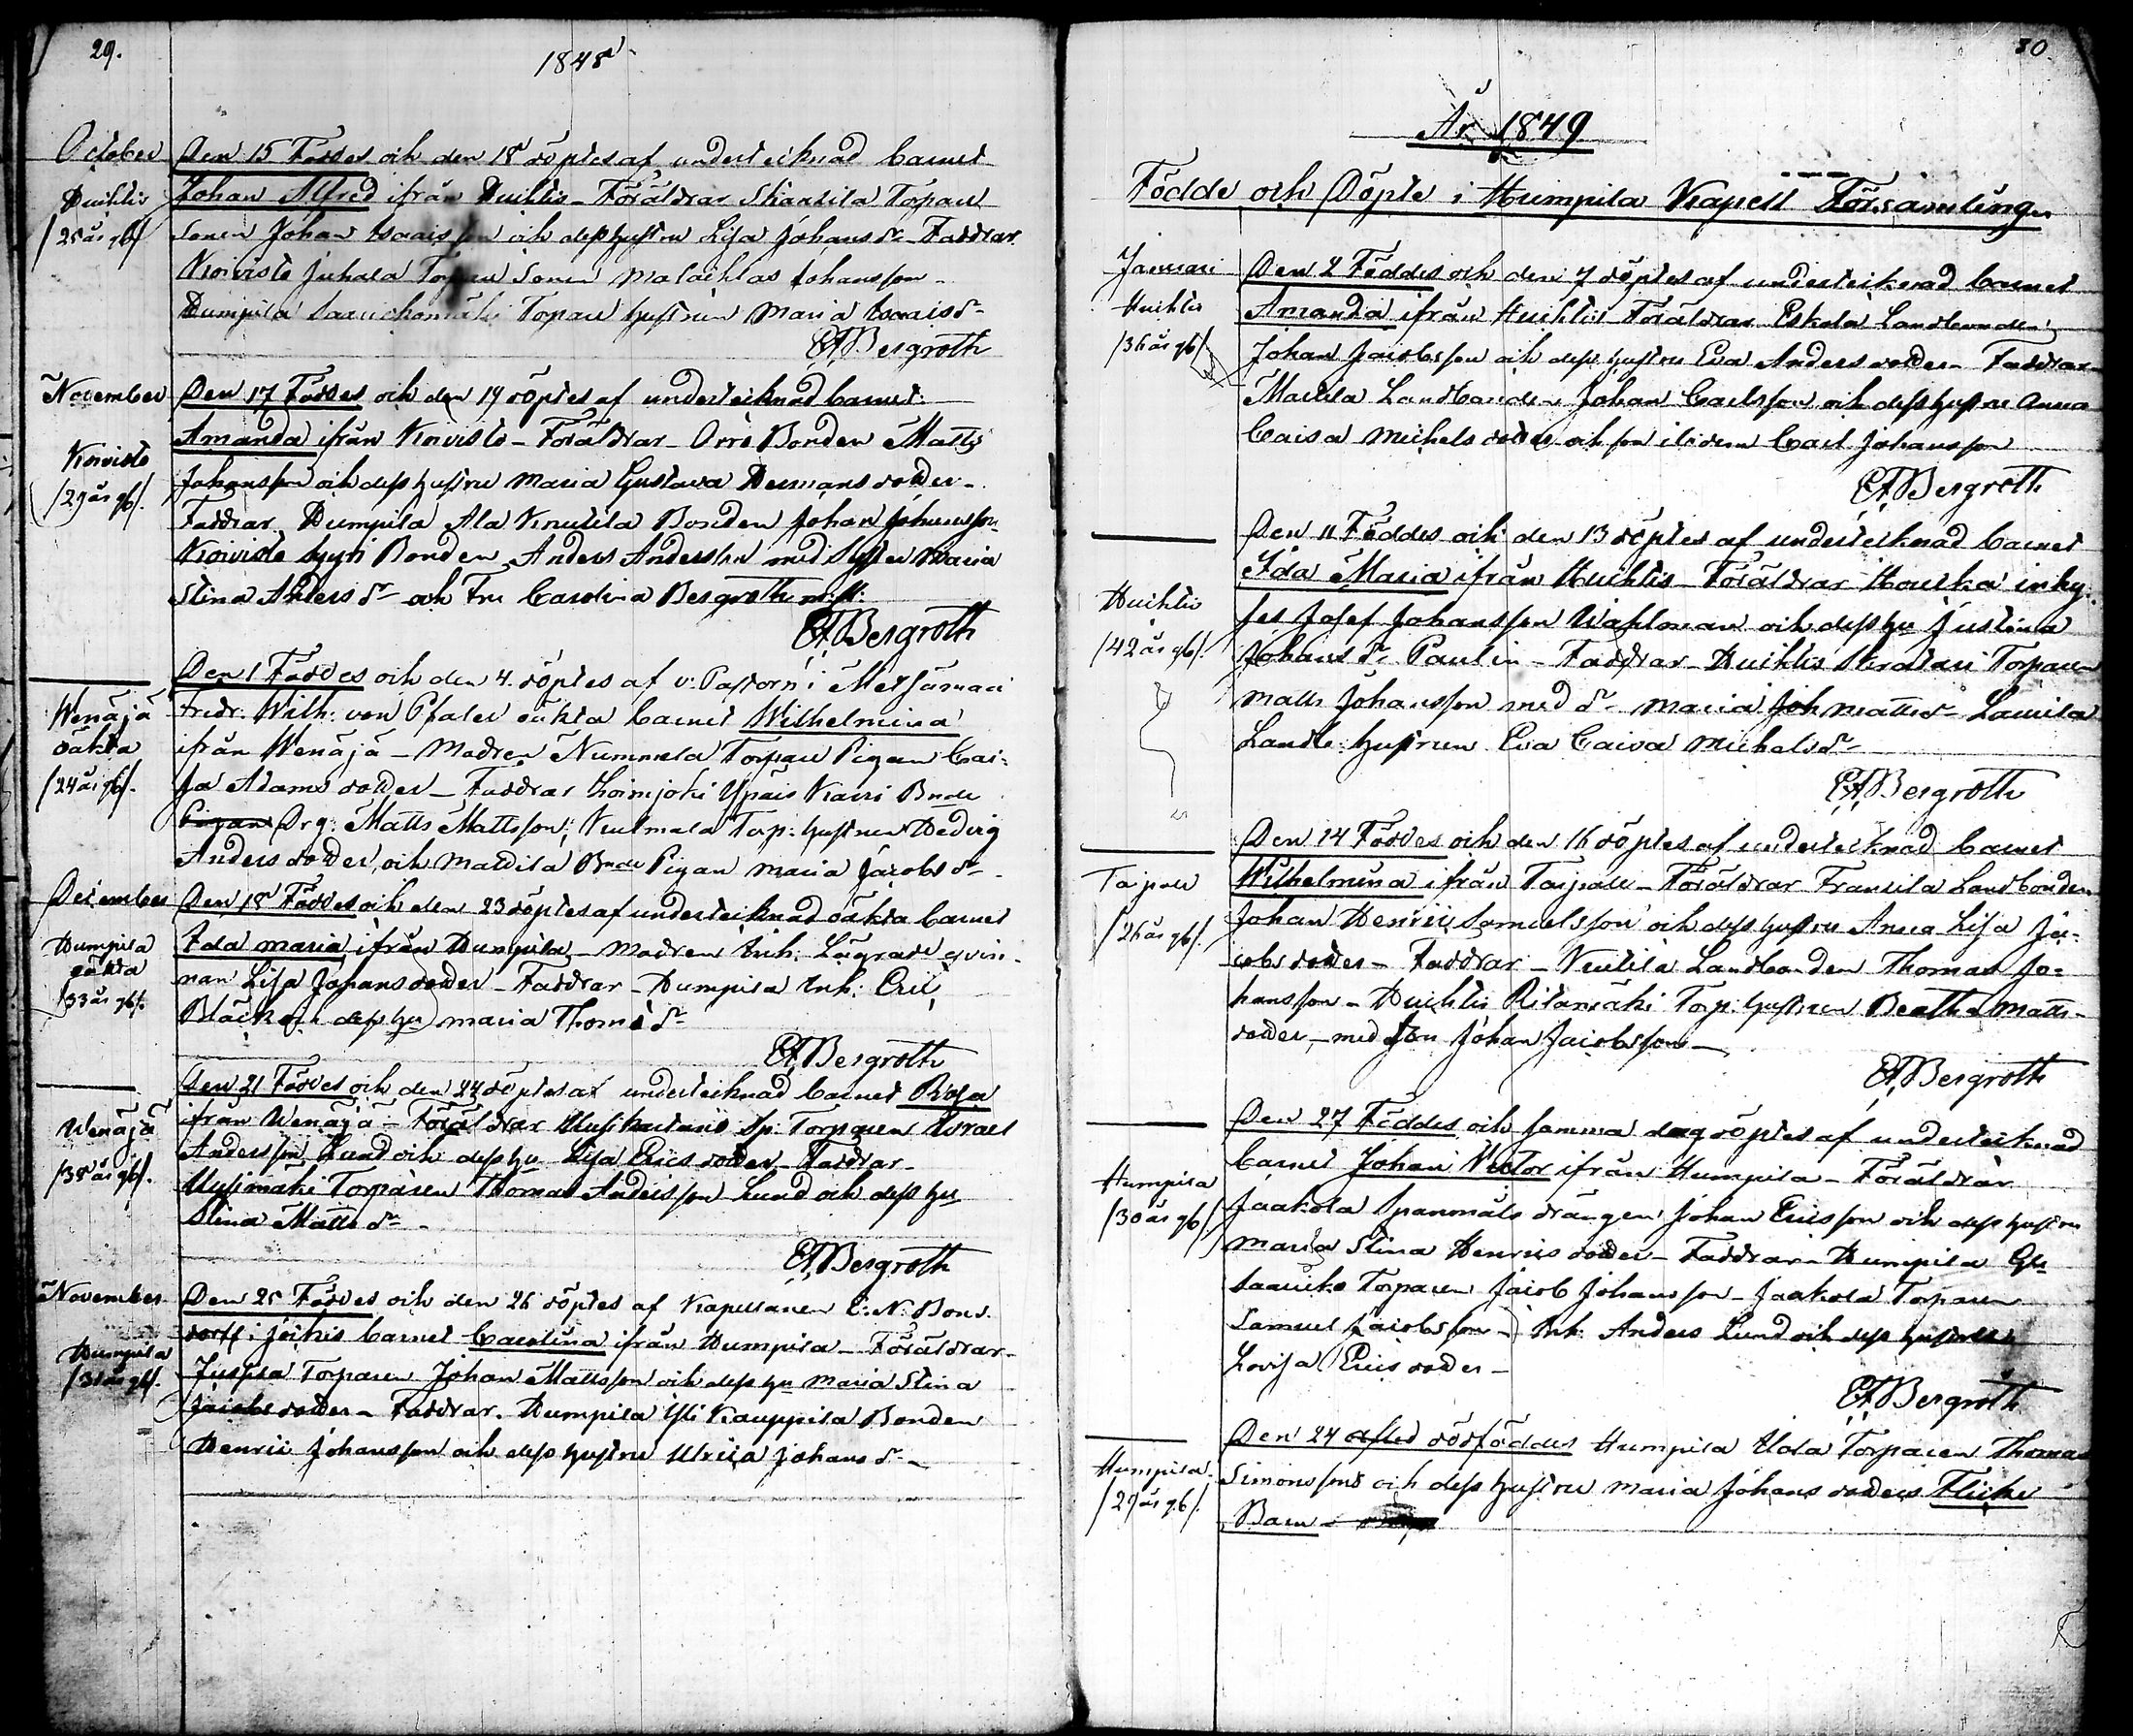 29.
1848
October
Den 15 Föddes och den 18 döptes af undertecknad barnet
Huihtis
Johan Alfred ifrån Huihtis - Föräldrar Skansila Torpare
/25 år gl/
Sonen Johan Isaacsson och dess hustru Lisa Johans dr - Faddrar
Koivisto Juhala Torpare Sonen Malachias Johansson -
Humpila Torpare hustrun Maria Isaacs dr
Bergroth
November
Den 17 Föddes och den 19 döptes af undertecknad barnet
Amanda ifrån Koivisto - Föräldrar - Orre Bonden Matts
Koivisto
Johansson och dess hustru Maria Gustava Hermans dotter -
/29 år gl/.
Faddrar Humpila Ala Knutila Bonden Johan Johansson
Koivisto Bonden Anders Andersson med Syster Maria
Stina Anders dr och Fru Carolina Bergroth
Bergroth
Den 1 Föddes och den 4. döptes af v: Pastorn i Metsämaa
Wenäjä
Fredr. Wilh: von Pfaler oäkta barnet Wilhelmina
oäkta
ifrån Wenäjä - Modren Nummela Torpare Pigan Cai-
/24 år gl/.
sa Adams dotter - Faddrar Loimijoki Ypäis Bonde
Pigan Drg: Matts Mattsson, Torp: hustrun Hedvig
Anders dotter, och Mattila Bonde Pigan Maria Jacobs dr
December
Den 18 Föddes och den 23 döptes af undertecknad oäkta barnet
Humpila
Ida Maria ifrån Humpila - Modren Inh: Lägrade qvin-
oäkta
nan Lisa Johans dotter - Faddrar - Humpila Inh: Eric
/33 år gl/.
Bläck och dess hu Maria Thomæ dr
Bergroth
Den 21 Föddes och den 24 döptes af undertecknad barnet Rosa
Wenäjä
ifrån Wenäjä - Föräldrar Sp: Torparen Israel
/38 år gl/.
Andersson Lund och dess hu Lisa Erics dotter - Faddrar -
Uusimäki Torparen Thomas Andersson Lund och dess hu
Stina Matts dr -
Bergroth
November
Den 25 Föddes och den 26 döptes af Kapellanen C: N: Bons-
dorff i Jockis barnet Carolina ifrån Humpila - Föräldrar -
Humpila
Jussila Torparen Johan Mattsson och dess hu Maria Stina
/31 år gl/.
Jacobs dotter - Faddrar. Humpila Yli Kauppila Bonden
Henric Johansson och dess hustru Ulrica Johans dr -
30
År 1849
Födde och Döpte i Humpila Kapell Församlingen
Januari
Den 2 Föddes och den 7 döptes af undertecknad barnet
Huihtis
Amanda ifrån Huihtis - Föräldrar Eskola Landbonden
/36 år gl/.
Johan Jacobsson och dess hustru Eva Anders dotter - Faddrar
Mattila Landbonden Johan Carlsson och dess hustru Anna
Caisa Michels dotter och son Carl Johansson
Bergroth
Den 11 Föddes och den 13 döptes af undertecknad barnet
Huihtis
Ida Maria ifrån Huihtis - Föräldrar inhy-
/42 år gl/.
ses Josef Johansson Wahlman och dess hu Justina
Johans dr Paulin - Faddrar - Huihtis Torparen
Matts Johansson med dr Maria Matts dr Laurila
Landb: hustrun Eva Caisa Michels dr
Bergroth
Den 14 Föddes och den 16 döptes af undertecknad barnet
Taipale
Wilhelmina ifrån Taipale - Föräldrar Fransila Landbonden
/26 år gl/.
Johan Henric Samuelsson och dess hustru Anna Lisa Ja-
cobs dotter - Faddrar - Landbonden Thomas Jo-
hansson - Huihtis Ritamäki Torp: hustrun Beatha Matts-
dotter, - med Son Johan Jacobsson -
Bergroth
Den 27 Föddes och samma dag döptes af undertecknad
Humpila
barnet Johan Victor ifrån Humpila - Föräldrar
/30 år gl/
Jaakola Spanmåls drängen Johan Ericsson och dess hustru
Maria Stina Henrics dotter - Faddrar - Humpila
Torparen Jacob Johansson - Jaakola Torparen
Samuel Jacobsson - Inh: Anders Lund och dess hustru
Lovisa Erics dotter -
Bergroth
Den 24 dödföddes Humpila Torparen Thomas
Humpila
Simonssons och dess hustru Maria Johans dotters Flicke
/29 år gl/.
Barn